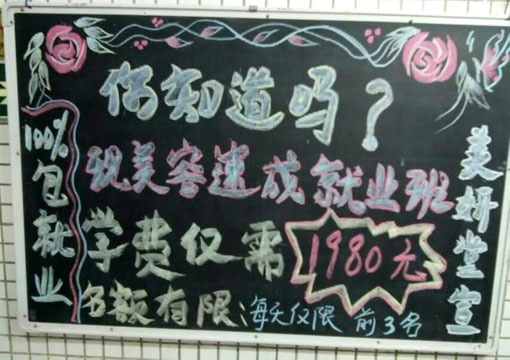 你知道吗？
现美容速成就业班
学费仅需1980元
名额有限：每天仅限 前3名
100%包就业
美妍堂宣